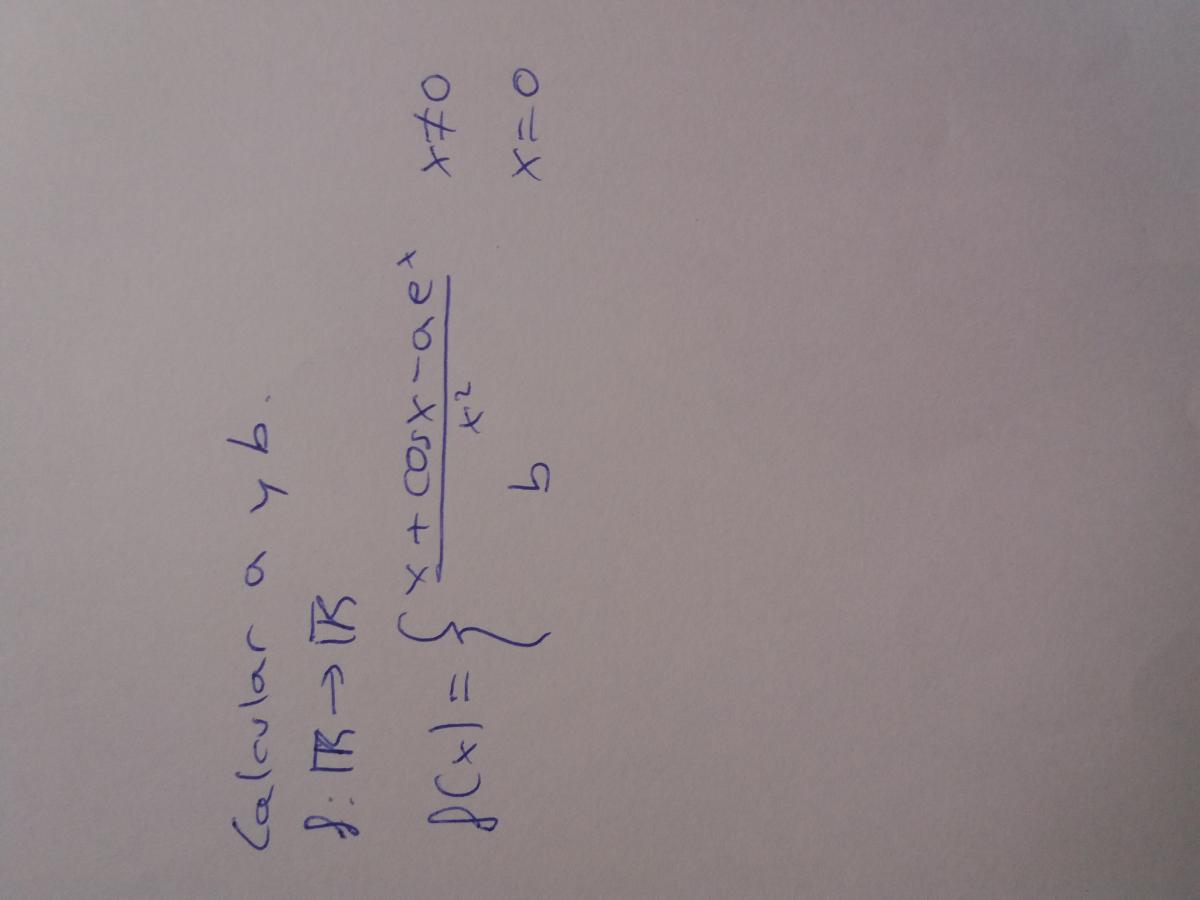 Calcular a y b.
f: ℝ → ℝ
f(x) = { (x + cosx - ae^x) / x² x ≠ 0
b x = 0